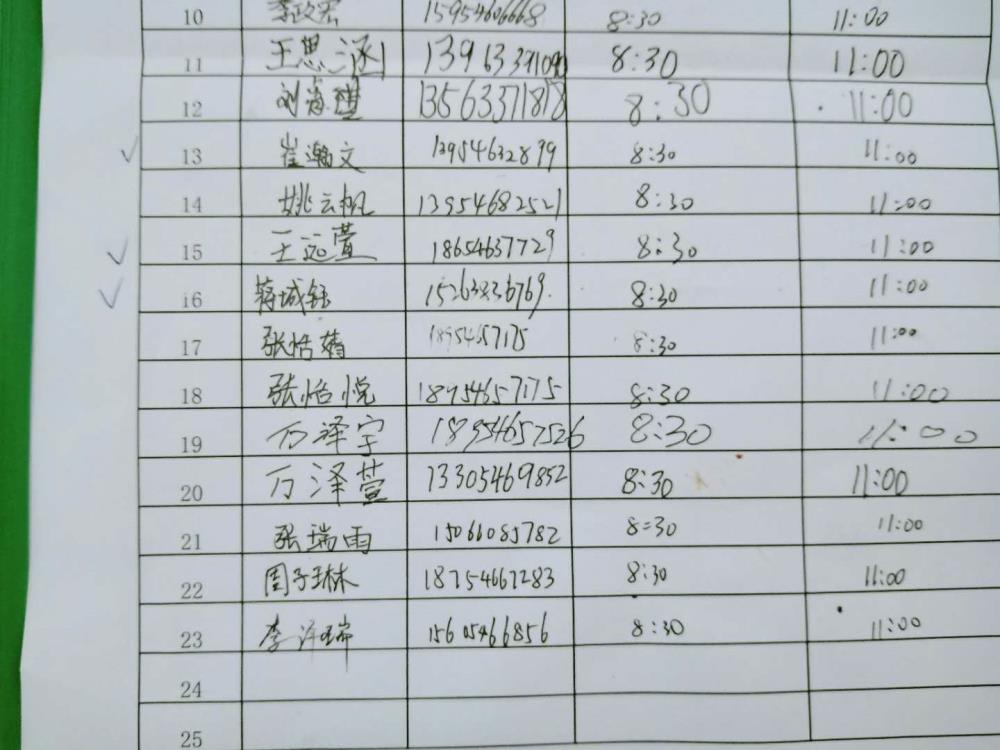 10 李政宏 15954606668 8:30 11:00
11 王思涵 13963371090 8:30 11:00
12 刘 13563371818 8:30 11:00
13 崔瀚文 13954632899 8:30 11:00
14 姚云帆 13954682521 8:30 11:00
15 王远萱 18654637729 8:30 11:00
16 蒋城钰 15263836769. 8:30 11:00
17 张恬婧 18954657175 8:30 11:00
18 张怡悦 18954657175 8:30 11:00
19 万泽宇 18954657526 8:30 11:00
20 万泽萱 13305469852 8:30 11:00
21 张瑞雨 15066085782 8:30 11:00
22 周子琳 18754667283 8:30 11:00
23 李沂瑞 15605466856 8:30 11:00
24
25